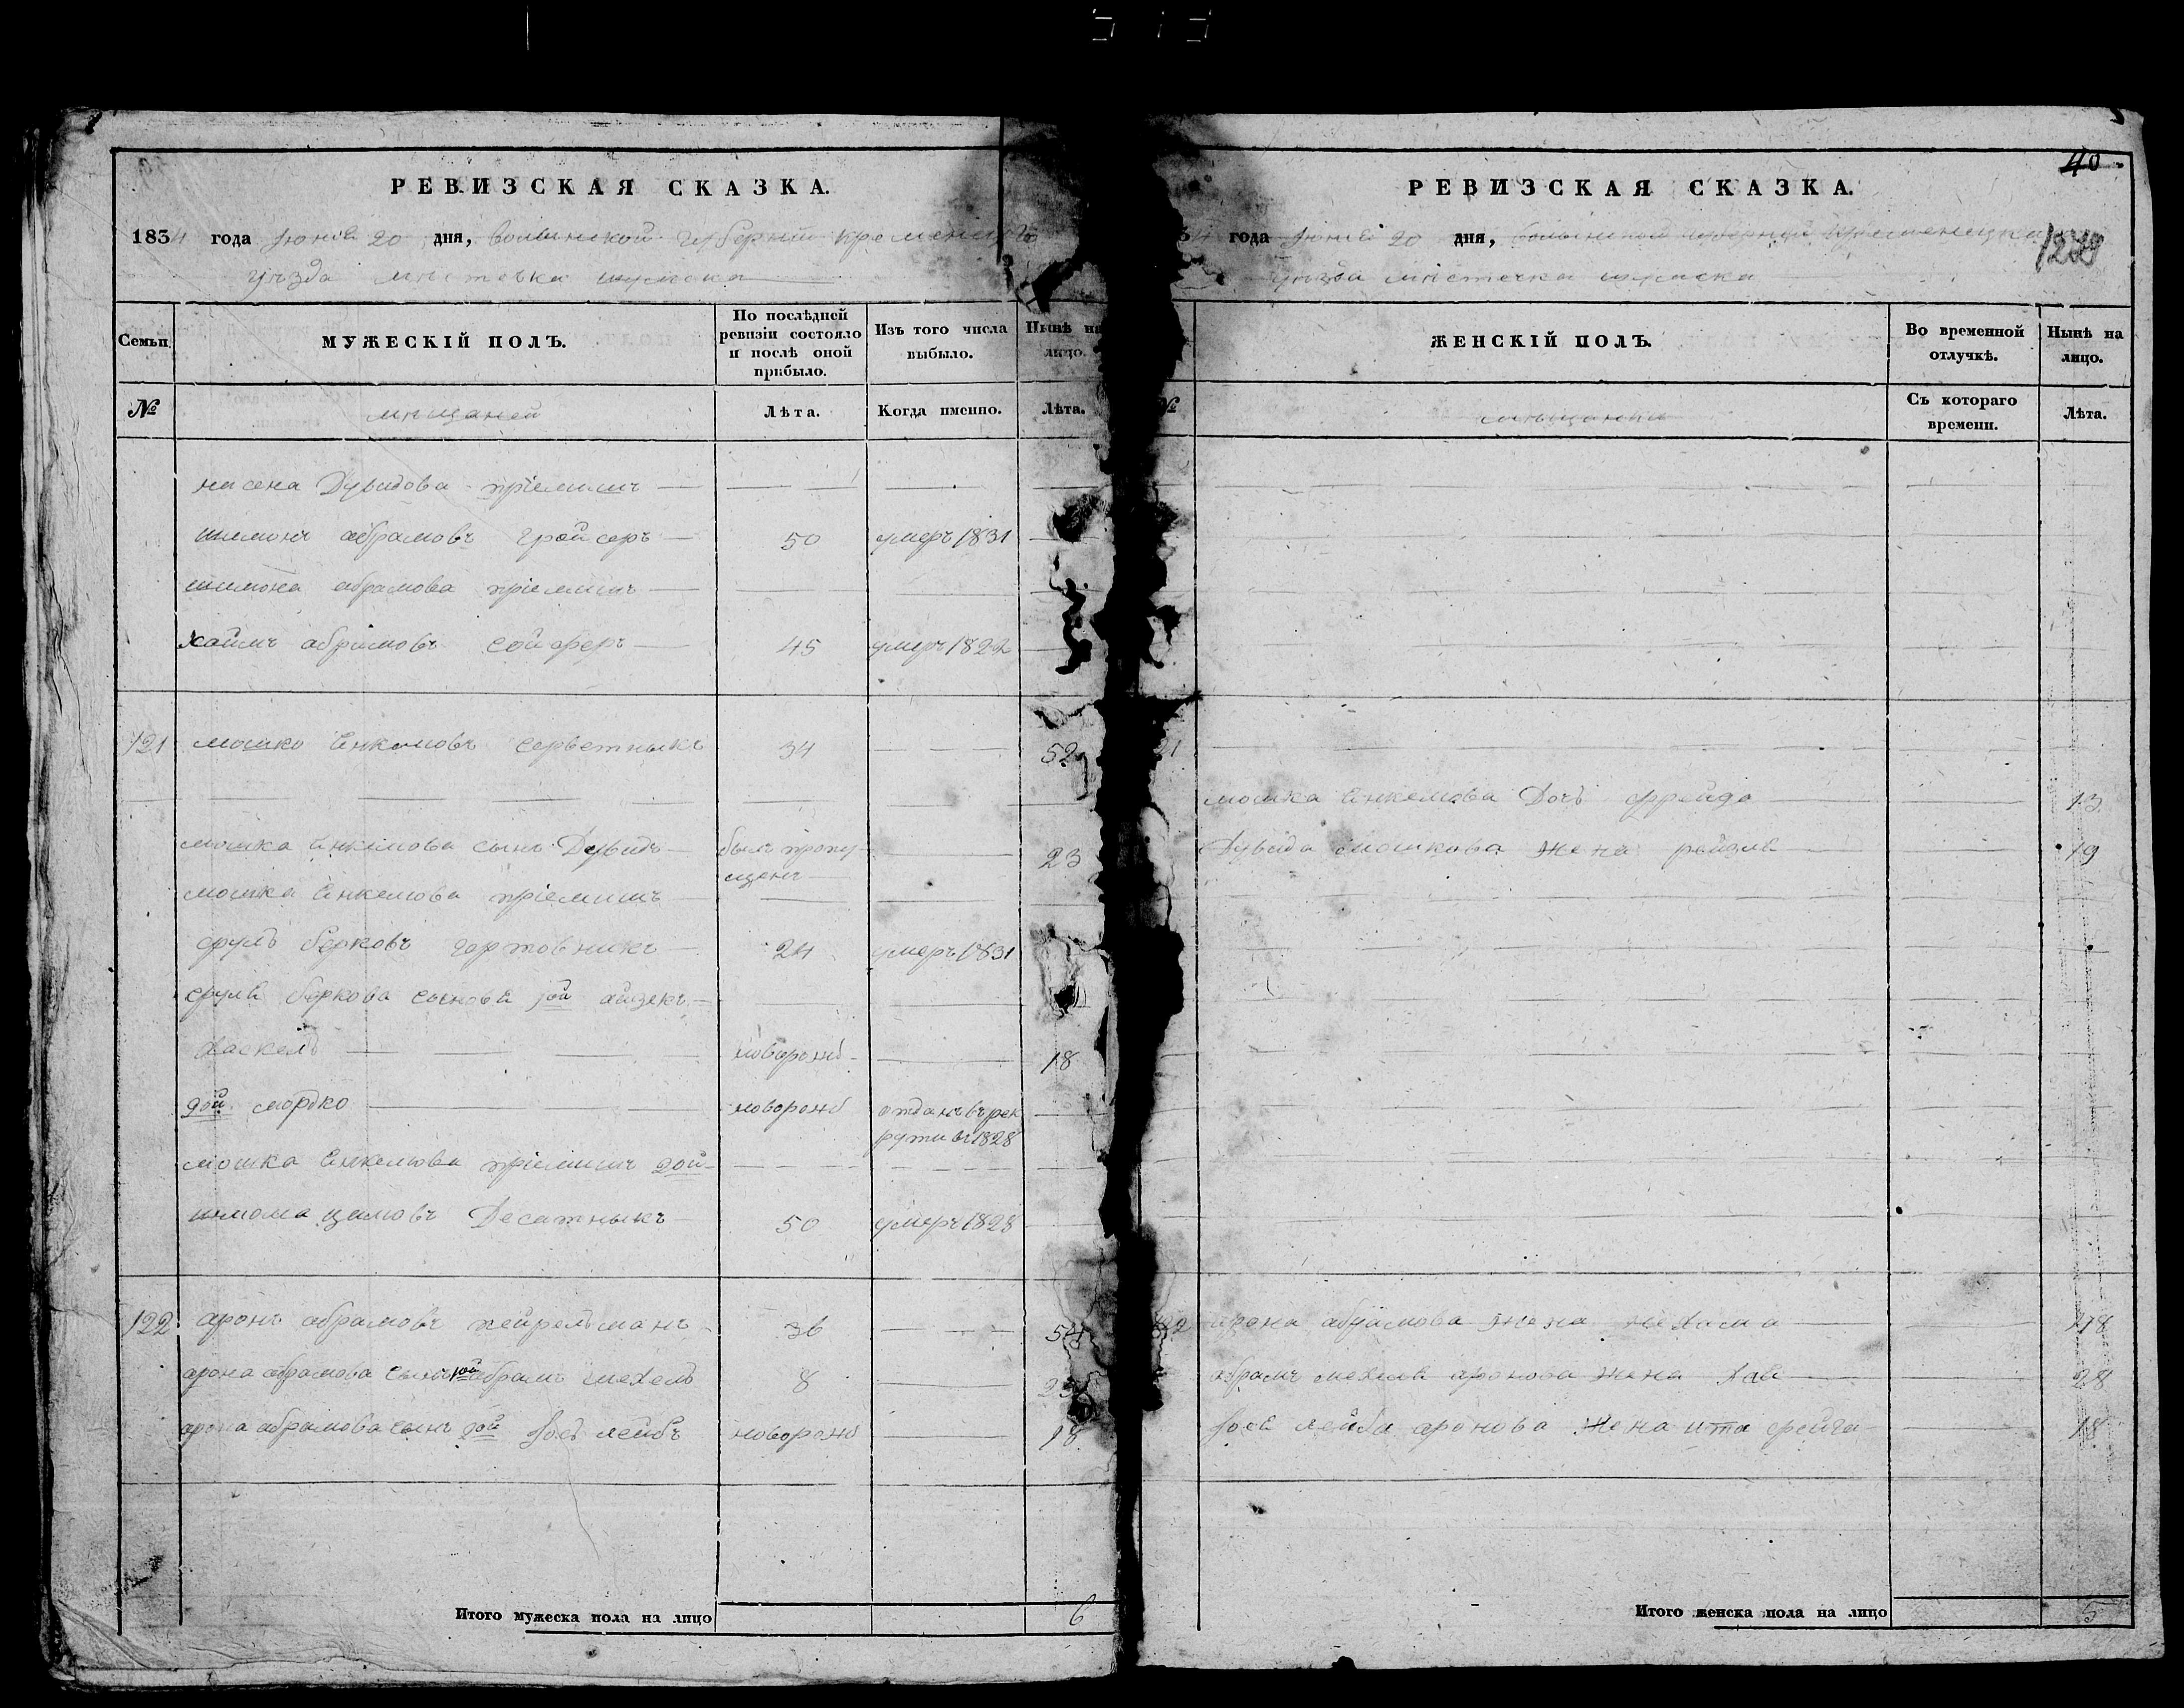 40
РЕВИЗСКАЯ СКАЗКА.
1834 года Іюня 20 дня, волынской губерніи кременецкго
уѣзда мѣстечка шумска
Семьи.
МУЖЕСКІЙ ПОЛЪ.
По послѣдней ревизіи состояло и послѣ оной прибыло.
Изъ того числа выбыло.
Нынѣ на лицо.
№
мѣщаней
Лѣта.
Когда именно.
Лѣта.
Дувидова пріемишъ
шимонъ абрамовъ гройсеръ 50 умеръ 1831
шимона абрамова пріемишъ
хаимъ абрамовъ сойферъ 45 умеръ 1822
121 мошко Єнкемовъ серветныкъ 34 52
мошка Єнкемова сынъ Дувидъ былъ пропу 23
щенъ
мошка Єнкемова пріемишъ
срулъ берковъ 24 умеръ 1831
сруля беркова сыновя 1ой айзекъ
хаскелъ новорожд 18
2ой мордко новорожд отданъ въ рек
рути въ 1828
мошка Єнкемова пріемишъ 2ой
шлома Десятныкъ 50 умеръ 1828
122 аронъ абрамовъ 36 54
арона абрамова сынъ 1ой абрамъ мехелъ 8
арона абрамова сынъ 2ой лейбъ новорожд 18
Итого мужеска пола на лицо 6
РЕВИЗСКАЯ СКАЗКА.
года Іюня 20 дня, волынской губерніи кременецка
уѣзда мѣстечка шумска
№
ЖЕНСКІЙ ПОЛЪ.
Во временной отлучкѣ.
Нынѣ на лицо.
Съ котораго времени.
Лѣта.
21
мошка Єнкемова Дочь фрейда 13
Дувида мошкова жена рейзля 19
арона абрамова жена нехама 48
абрамъ мехеля аронова жена хая 28
лейба аронова жена ита фейга 18
Итого женска пола на лицо 5